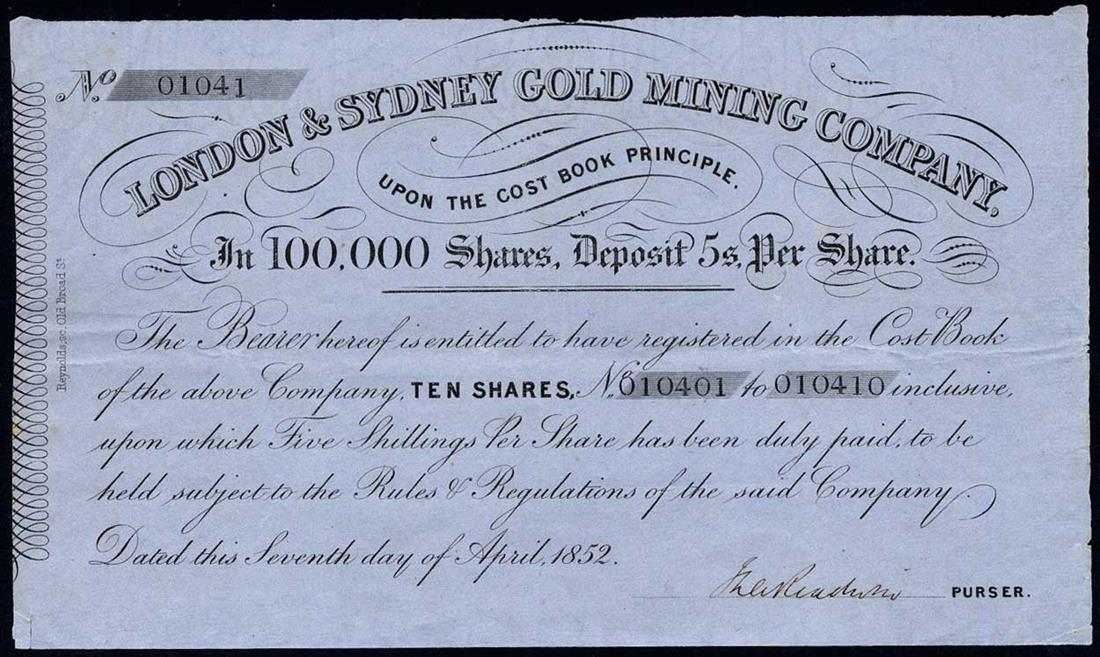 No. 01041
LONDON & SYDNEY GOLD MINING COMPANY,
UPON THE COST BOOK PRINCIPLE.
In 100,000 Shares, Deposit 5s, Per Share.
The Bearer hereof is entitled to have registered in the Cost Book
of the above Company, TEN SHARES, No. 010401 to 010410 inclusive,
upon which Five Shillings Per Share has been duly paid, to be
held subject to the Rules & Regulations of the said Company.
Dated this Seventh day of April, 1852.
PURSER.
Reynolds, Old Broad St